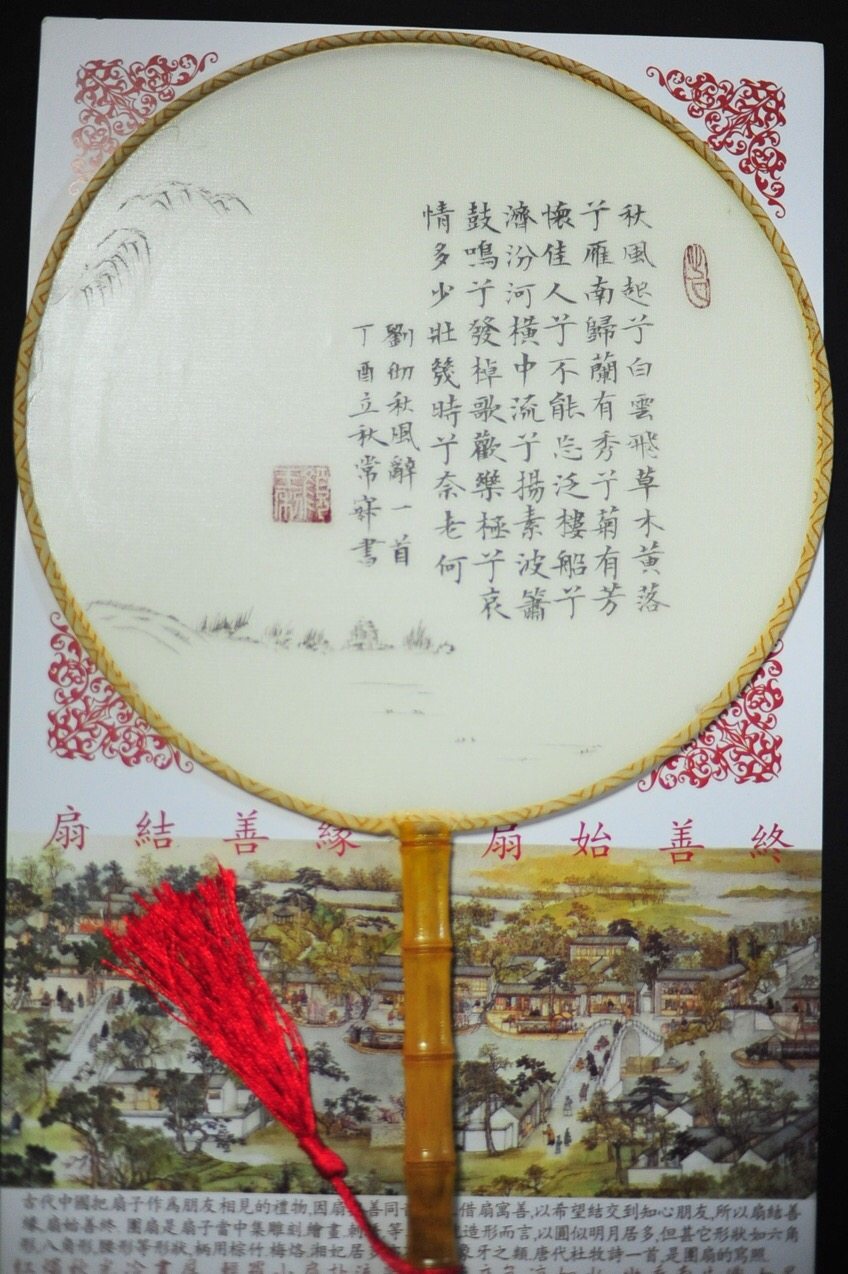 秋風起兮白雲飛草木黃落
兮雁南歸蘭有秀兮菊有芳
懷佳人兮不能忘泛樓船兮
濟汾河橫中流兮揚素波簫
鼓鳴兮發棹歌歡樂極兮哀
情多少壯幾時兮奈老何
劉彻秋風辭一首
丁酉立秋常書
扇結善緣 扇始善終
古代中國把扇子作為朋友相見的禮物,因扇善同借扇寓善,以希望結交到知心朋友,所以扇結善
緣,扇始善終.團扇是扇子當中集雕刻,繪畫,刺等造形而言,以圓似明月居多,但甚它形狀如六角
形,八角形,腰形等形狀,柄用棕竹,梅烙,湘妃居多象牙之類.唐代杜牧詩一首,是團扇的寫照.